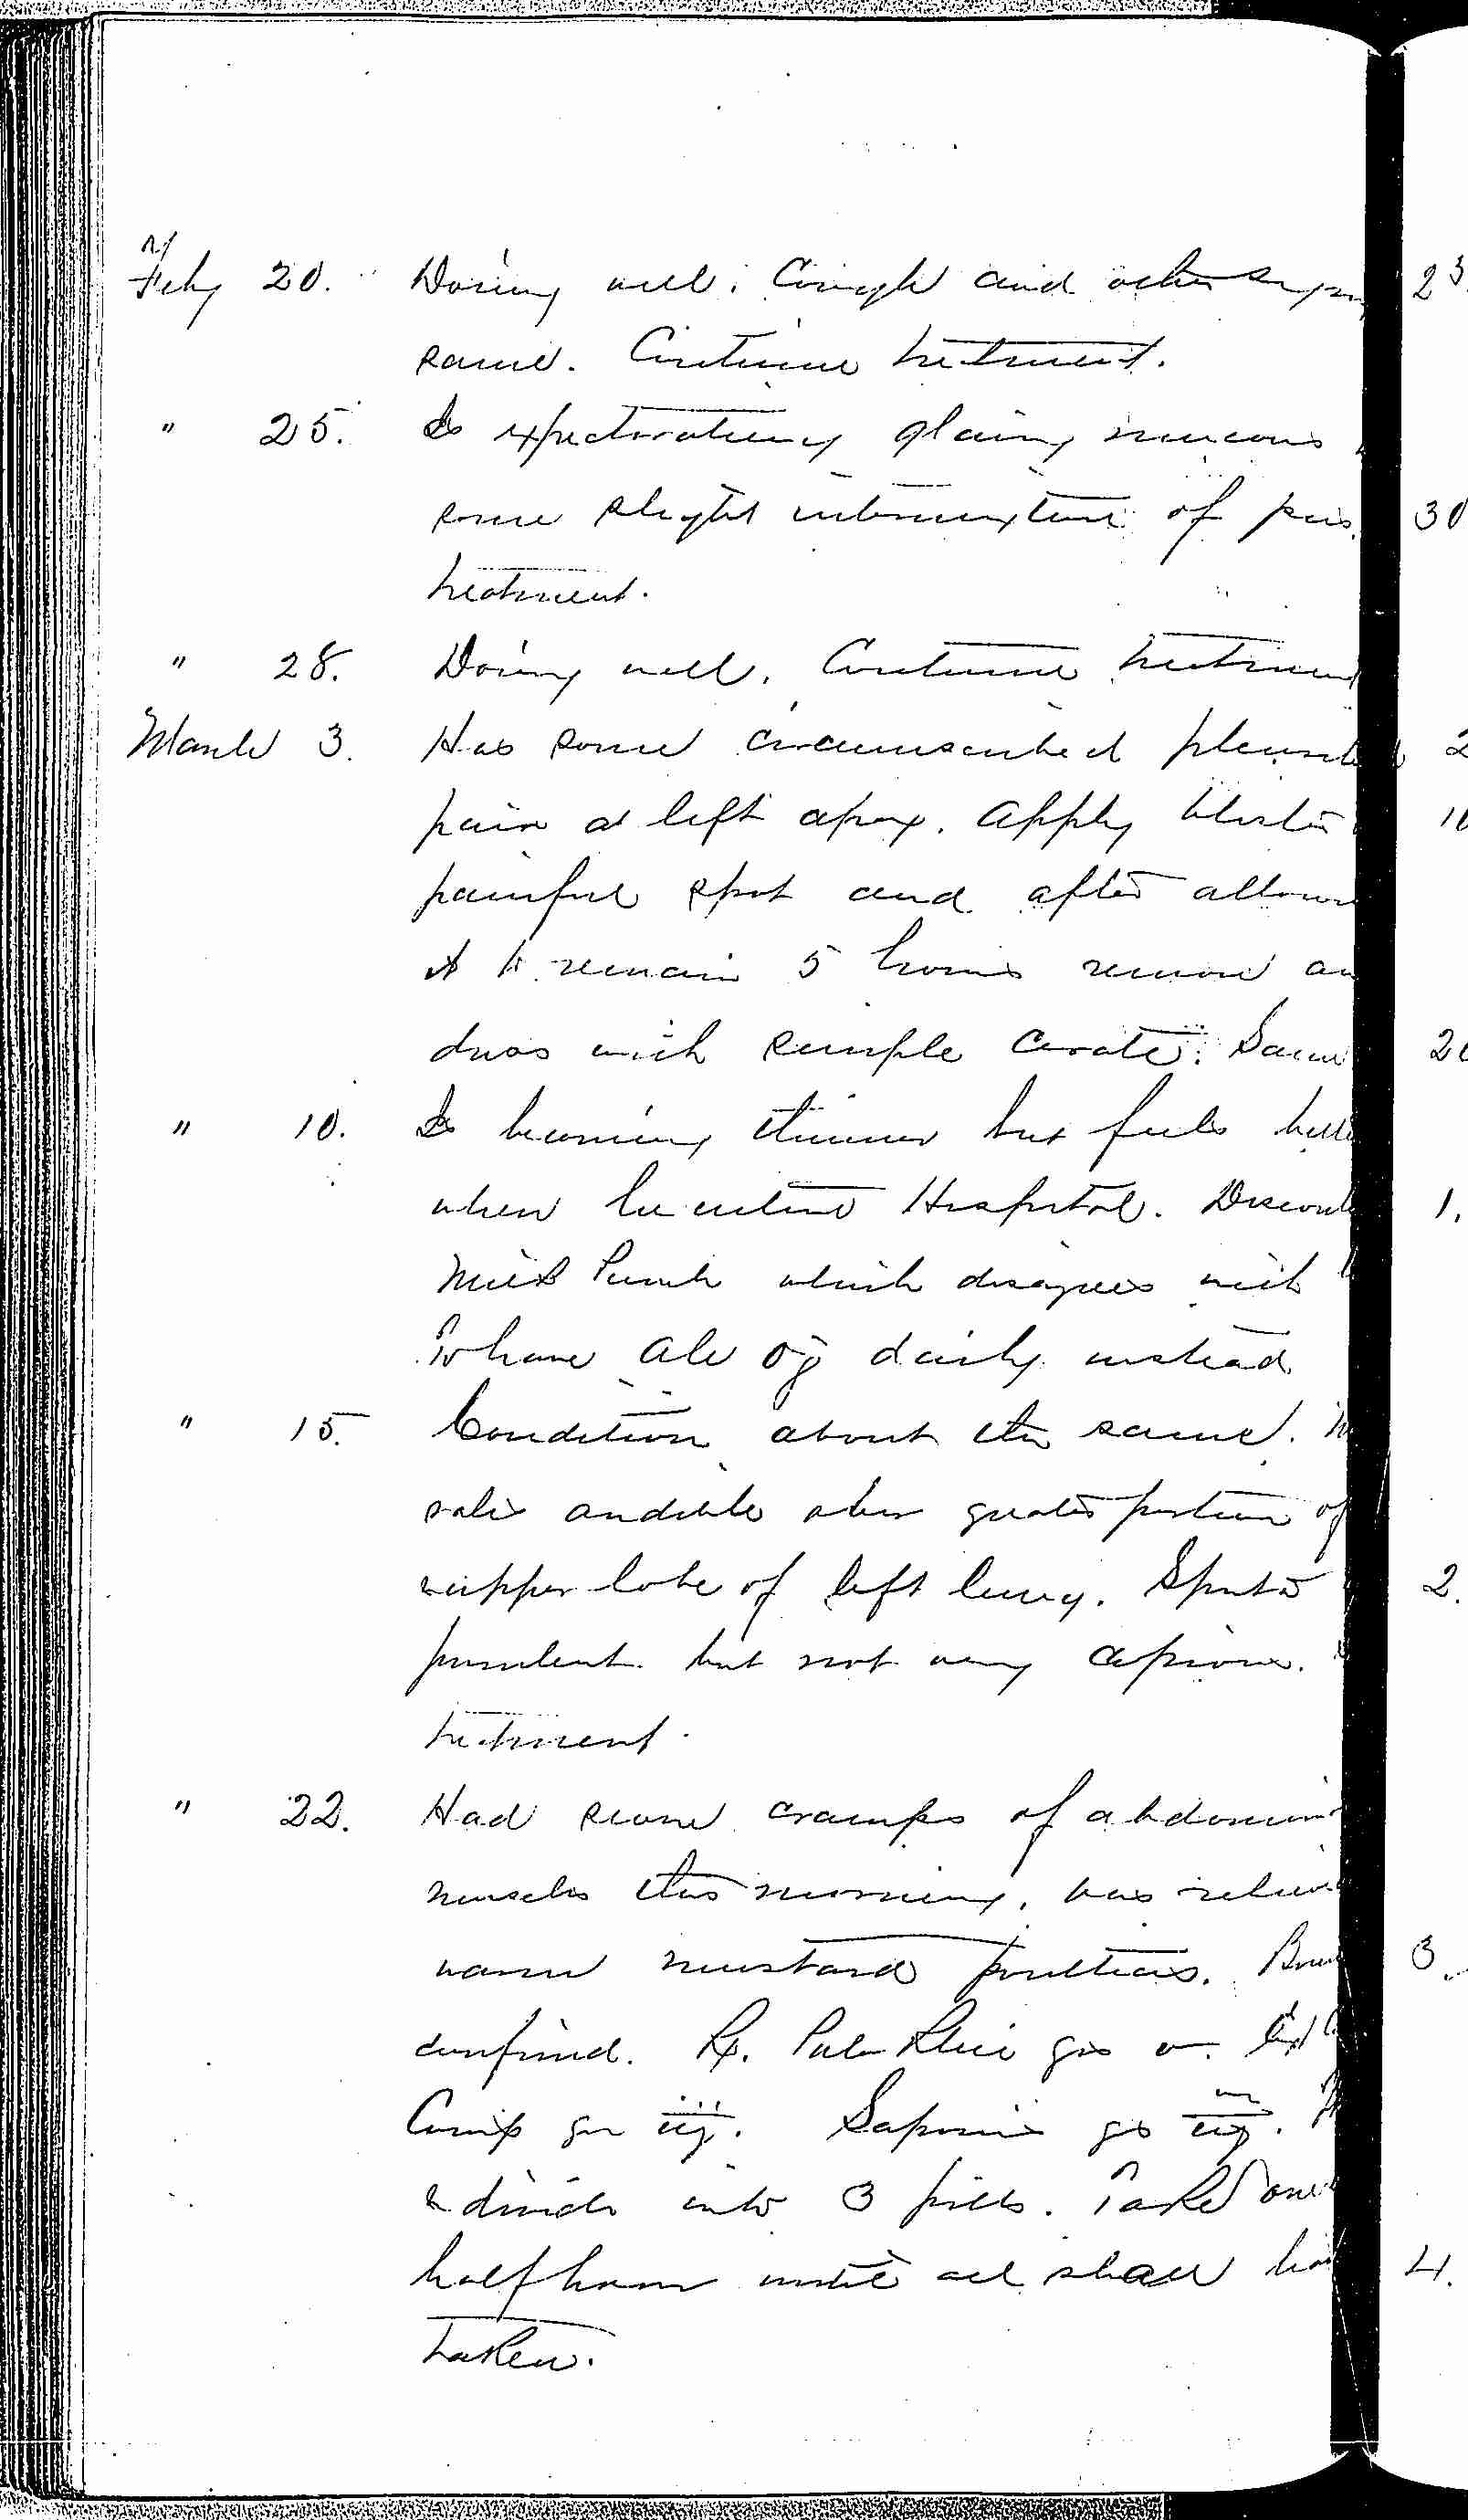 Feby 20. Doing well. Cough and other sym
same. Continue treatment.
" 25. Is expectorating glairy mucous
some slight intermixture of pus.
treatment.
" 28. Doing well. Continue treatment
March 3. Has some circumscribed pleurit
pain at left apex. Apply blister
painful spot and after allow
it to remain 5 hours remove an
dress with simple cerate. Same
" 10. Is becoming thinner but feels bette
when he entered Hospital. Discont
Milk Punch which disagrees with
To have ale Oj daily instead
" 15. Condition about the same. M
rales audible over greater portion of
upper lobe of left lung. Sputa
purulent but not very copious.
treatment.
" 22. Had severe cramps of abdomin
muscles this morning, was reliev
warm mustard poultices. Bow
confined. Rx. Pulv Rhei grs v. Ext
Comp grs iij. Saponis grs iij.
& divide into 3 pills. Take one
half hour until all shall hav
taken.
23
30
2
10
20
1.
2.
3.
4.